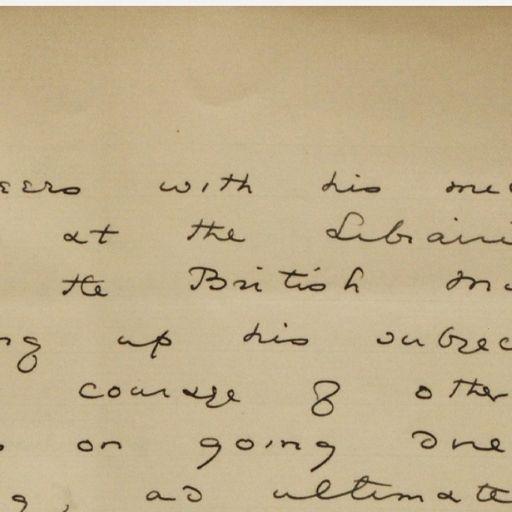 with his
at the Librairi
the British
up his subjec
courage of other
on going one
, as ultimate